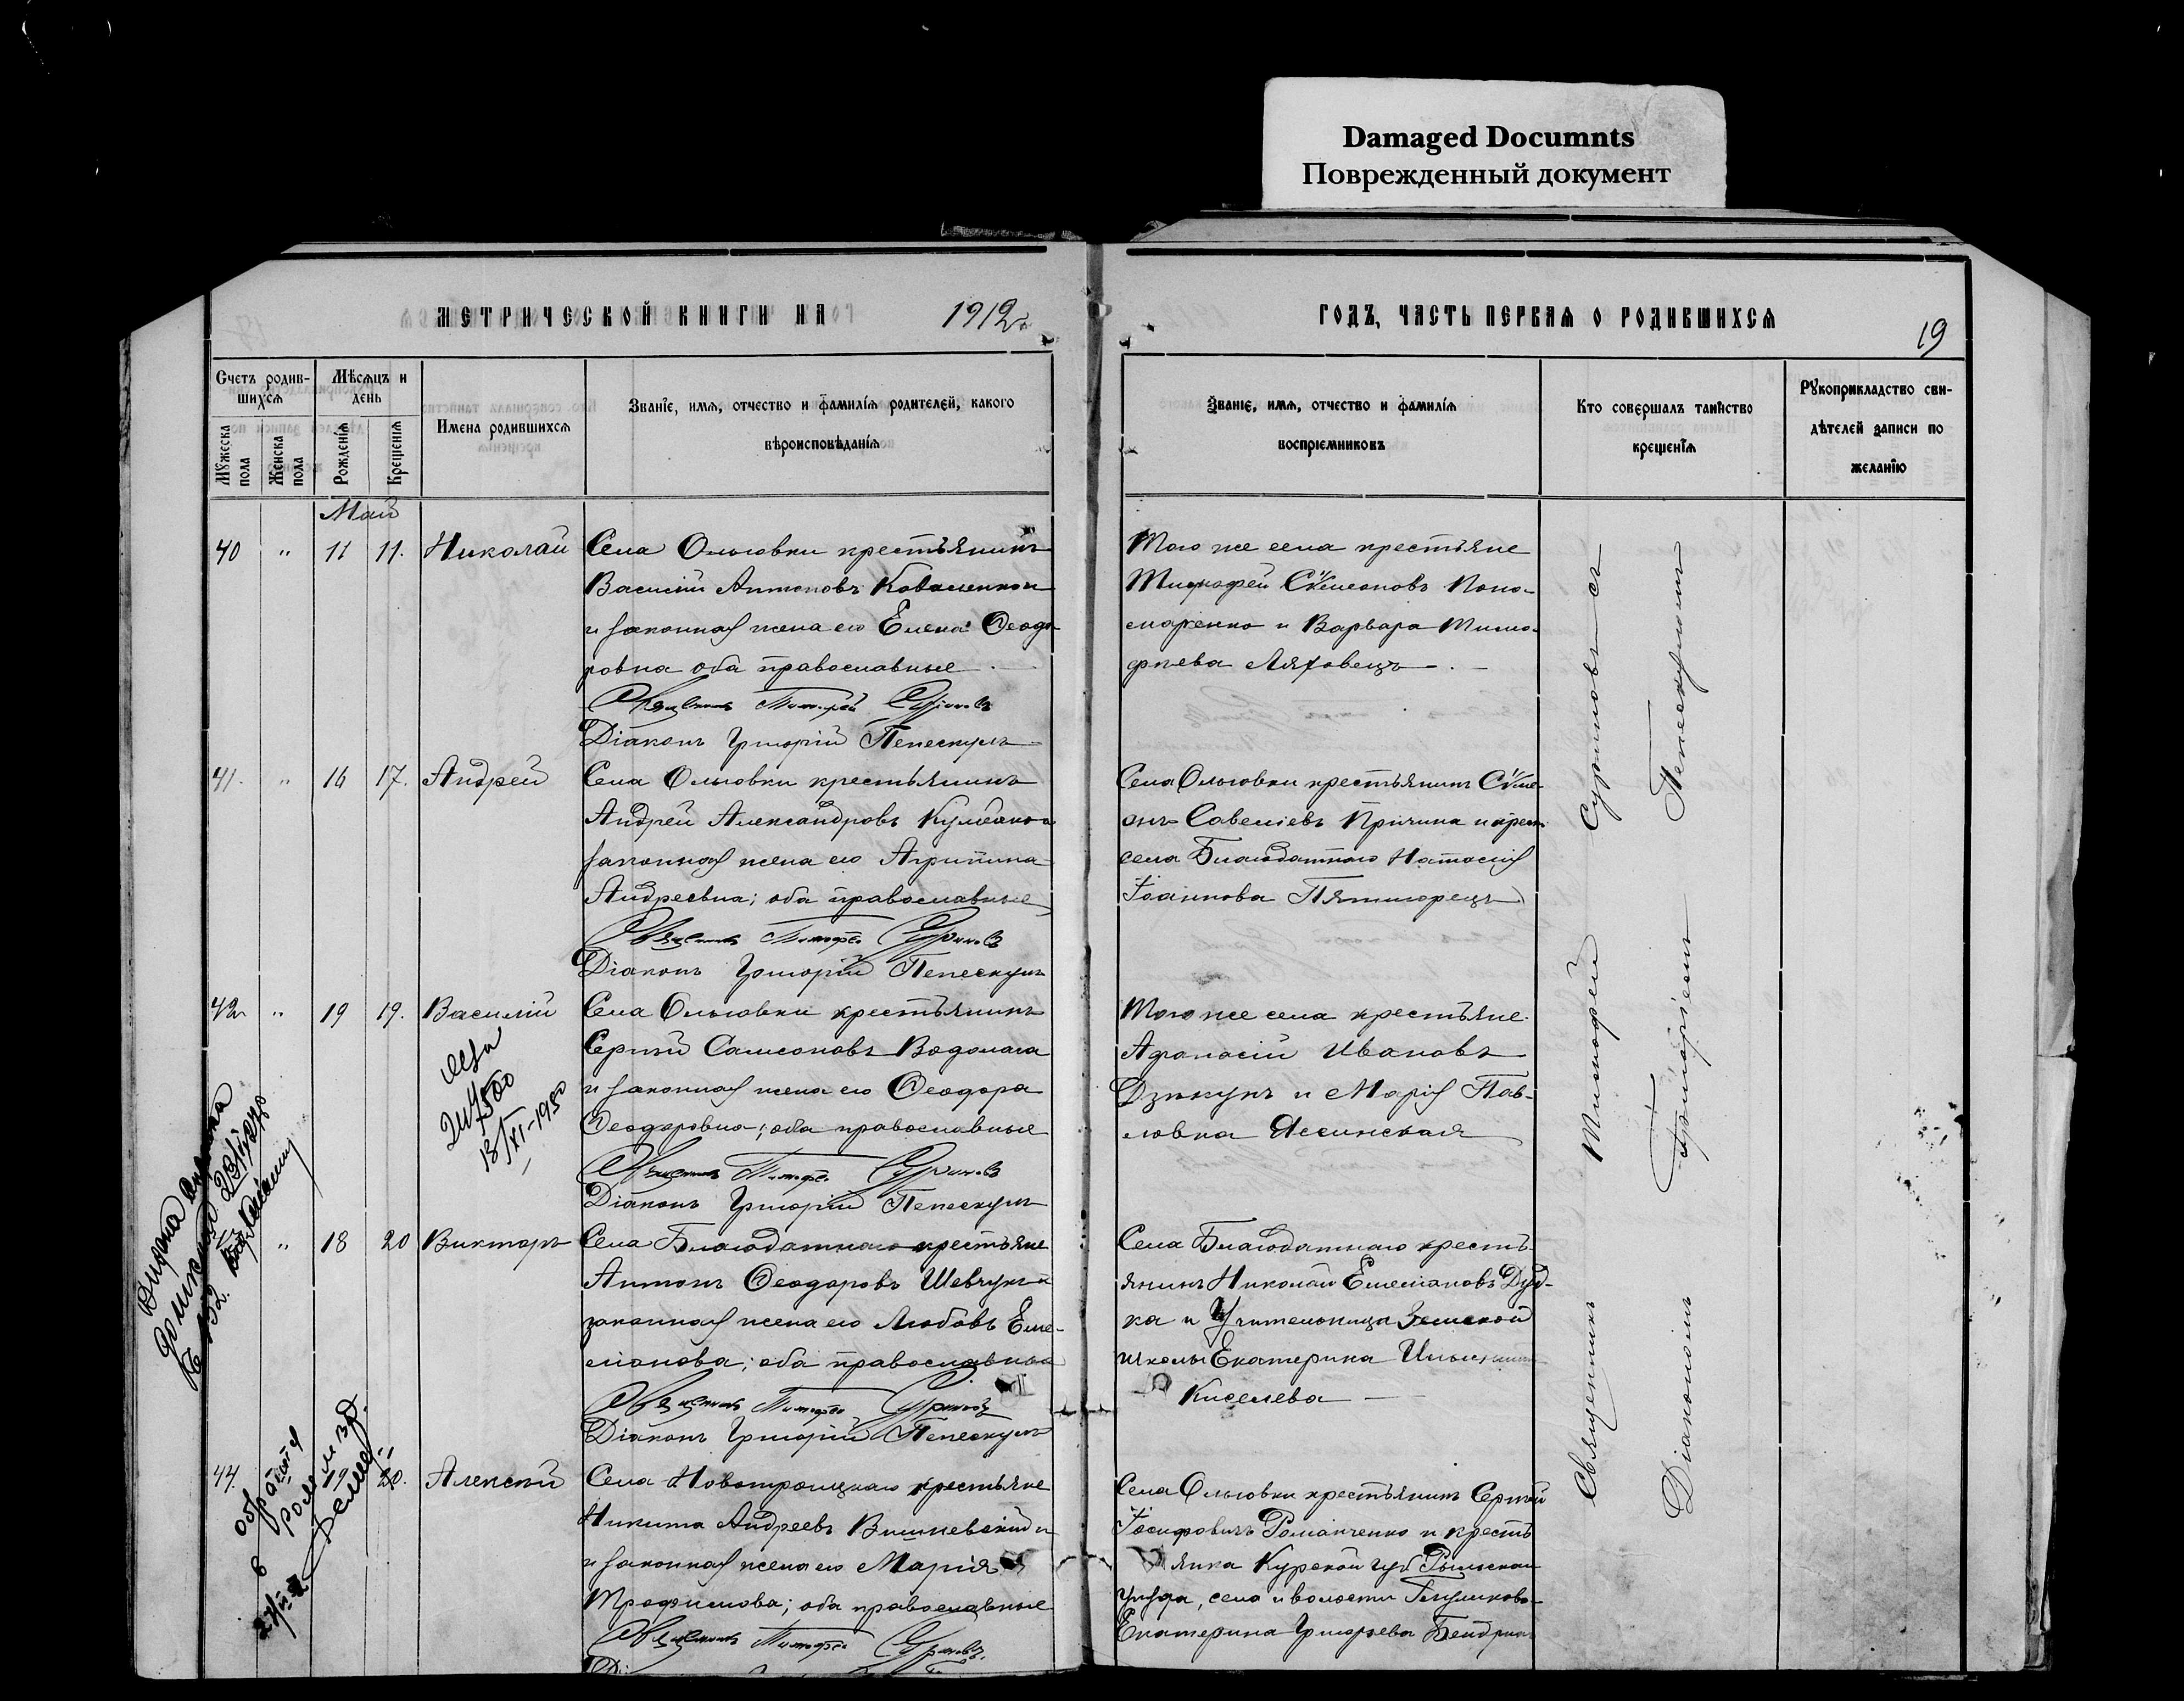 Damaged Documnts
Поврежденный документ
МЕТРИЧЕСКОЙ КНИГИ НА 1912 г.
ГОДЪ, ЧАСТЬ ПЕРВАЯ О РОДИВШИХСЯ
19
Счетъ родив-
шихся
Мужеска пола
Женска пола
Мѣсяцъ и
день
Рожденія
Крещенія
Имена родившихся
Званіе, имя, отчество и фамилія родителей, какого
вѣроисповѣданія
Званіе, имя, отчество и фамилія
воспріемниковъ
Кто совершалъ таинство
крещенія
Рукоприкладство сви-
дѣтелей записи по
желанію
Май
40 " 11 11. Николай
Села Ольговки крестьянинъ
Василій Антоновъ
и законная жена его Елена Ѳеодо-
ровна оба православные
Священникъ Тимофей Суриновъ
Діаконъ Григорій Пепескулъ
Того же села крестьяне
Тимофей Сѵмеоновъ Поно-
маренко и Варвара Тимо-
фѣева Ляховецъ
41. " 16 17. Андрей
Села Ольговки крестьянинъ
Андрей Александровъ
законная жена его Агрипина
Андреевна; оба православные
Священникъ Тимофей Суриновъ
Діаконъ Григорій Пепескулъ
Села Ольговки крестьянинъ Сѵме-
онъ Савеліевъ Причина и крест.
села Благодатнаго Натасія
Іоаннова Пятигорецъ
42 " 19 19. Василій
Села Ольговки крестьянинъ
Сергѣй Самсоновъ Водолага
и законная жена его Ѳеодора
Ѳеодоровна; оба православные
Священникъ Тимофей Суриновъ
Діаконъ Григорій Пепескулъ
Того же села крестьяне
Афанасій Ивановъ
Дзикунъ и Марія Пав-
ловна Ясинская
" 18 20 Викторъ
Села Благодатнаго крестьяне
Антонъ Ѳеодоровъ Шевчукъ и
законная жена его Любовь Еме-
ліанова; оба православные
Священникъ Тимофей Суриновъ
Діаконъ Григорій Пепескулъ
Села Благодатнаго кресть-
янинъ Николай Емеліановъ Дуд-
ка и Учительница Земской
школы Екатерина
Киселева
44. 19 20. Алексѣй
Села Новотроицкаго крестьяне
Никита Андреевъ Вишневскій и
и законная жена его Марія
Трофимова; оба православные
Священникъ Тимофей Суриновъ.
Села Ольговки крестьянинъ Сергѣй
Іосифовичъ Романченко и кресть-
янка Курской губ Рыльскаго
уѣзда, села и волости
Екатерина Григорьева
Священникъ Тимофей Суриновъ съ
Діакономъ Григоріемъ Пепескуломъ